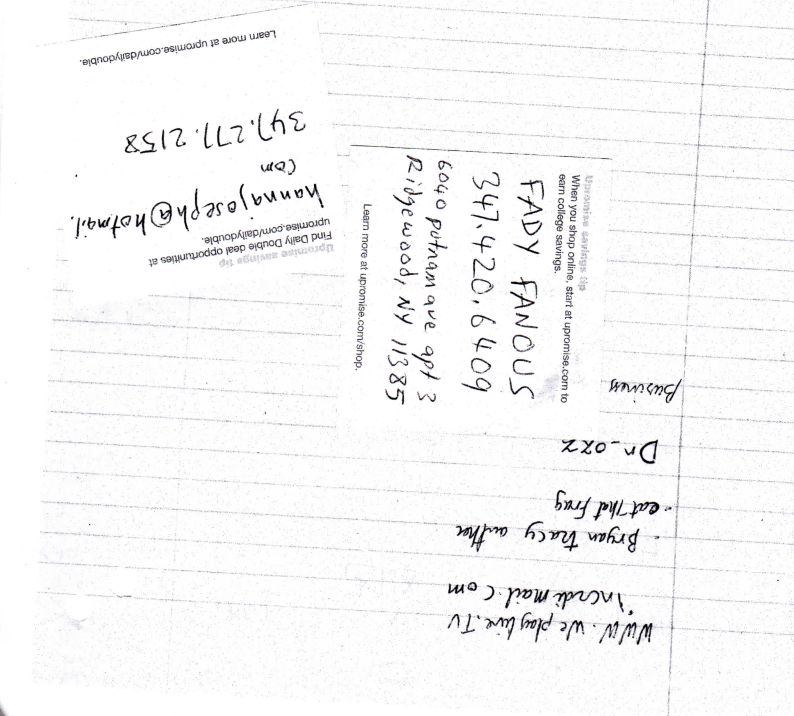 WWW. We play Live. TV
incrdimail. Com
- Bryan tracy auther
- eat That frog
Dr_ozz
Business
Upromise savings tip
When you shop online, start at upromise.com to
earn college savings.
FADY FANOUS
347.420.6409
6040 putnam ave apt 3
Ridgewood, NY 11385
Learn more at upromise.com/shop.
Upromise savings tip
Find Daily Double deal opportunities at
upromise.com/dailydouble.
hannajoseph@hotmail.
Com
347.277.2158
Learn more at upromise.com/dailydouble.